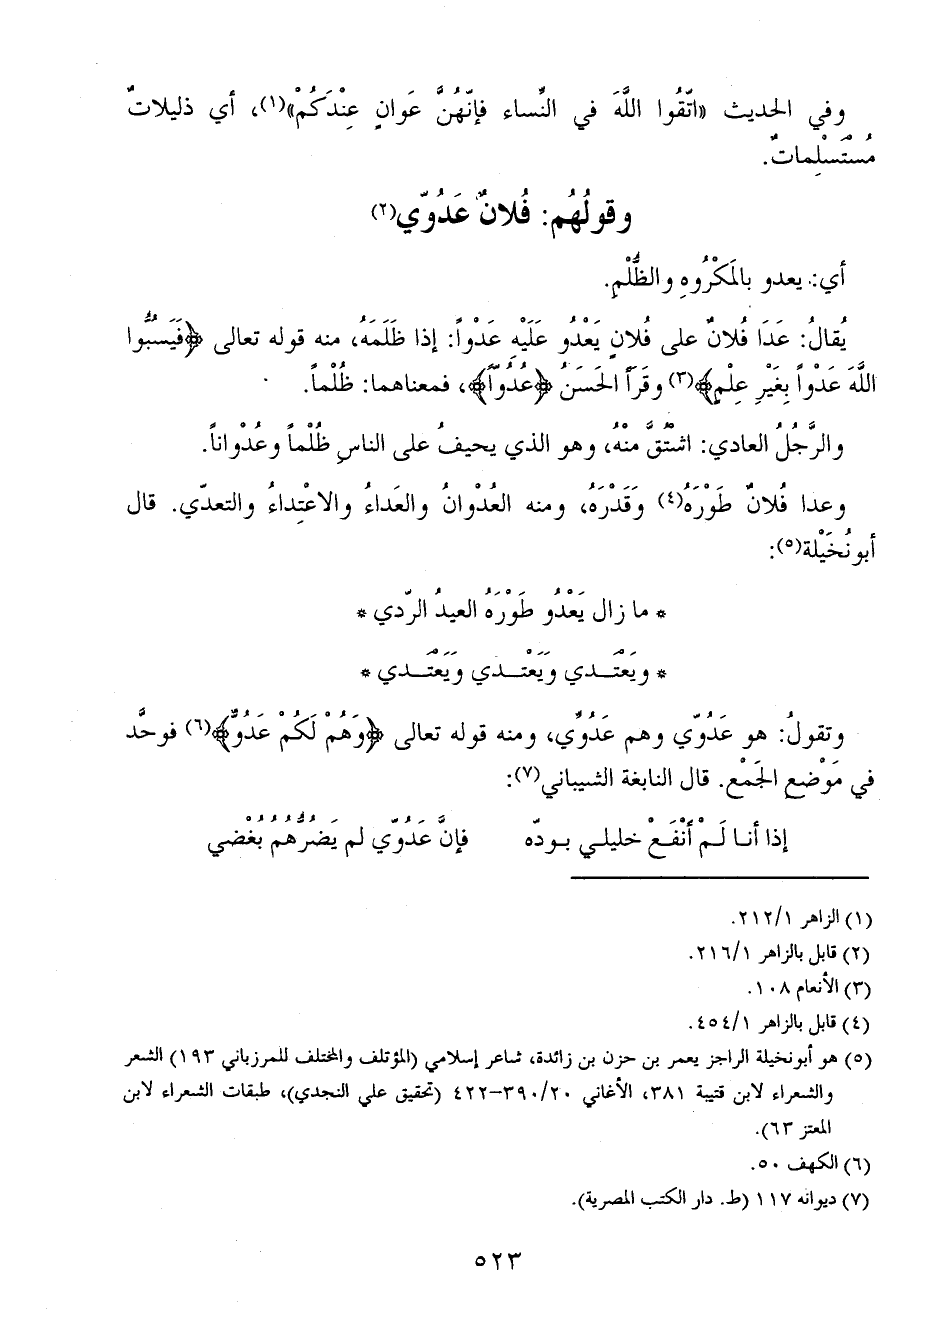 وفي الحديث «اتّقُوا اللَّهَ في النِّساء فإنّهُنَّ عَوانٍ عِنْدَكُمْ»(١)، أي ذليلاتٌ
مُسْتَسْلِماتٌ.
وقولُهُم: فُلانٌ عَدُوّي(٢)
أي: يعدو بالمَكْرُوهِ والظُّلْمِ.
يُقالُ: عَدَا فُلانٌ على فُلانٍ يَعْدُو عَلَيْهِ عَدْواً: إذا ظَلَمَهُ، منه قوله تعالى ﴿فَيَسُبُّوا
اللَّهَ عَدْواً بِغَيْرِ عِلْمٍ﴾(٣) وقَرَأَ الحَسَنُ ﴿عُدُوّاً﴾، فمعناهما: ظُلْماً.
والرَّجُلُ العادي: اشْتُقَّ مِنْهُ، وهو الذي يحيفُ على الناسِ ظُلْماً وعُدْواناً.
وعدا فُلانٌ طَوْرَهُ(٤) وَقَدْرَهُ، ومنه العُدْوانُ والعَداءُ والاعْتِداءُ والتعدّي. قال
أبو نُخَيْلة(٥):
* ما زال يَعْدُو طَوْرَهُ العيدُ الرّدي *
* ويَعْتَــدي ويَعْتَــدي ويَعْتَــدي *
وتقولُ: هو عَدُوّي وهم عَدُوّي، ومنه قوله تعالى ﴿وَهُمْ لَكُمْ عَدُوٌّ﴾(٦) فوحَّد
في مَوْضعِ الجَمْعِ. قال النابغة الشيباني(٧):
إذا أنـا لَـمْ أَنْفَـعْ خليلـي بـودّه فإنَّ عَدُوّي لم يَضُرُّهُمُ بُغْضي
(١) الزاهر ٢١٢/١.
(٢) قابل بالزاهر ٢١٦/١.
(٣) الأنعام ١٠٨.
(٤) قابل بالزاهر ٤٥٤/١.
(٥) هو أبو نخيلة الراجز يعمر بن حزن بن زائدة، شاعر إسلامي (المؤتلف والمختلف للمرزباني ١٩٣) الشعر
والشعراء لابن قتيبة ٣٨١، الأغاني ٣٩٠/٢٠–٤٢٢ (تحقيق علي النجدي)، طبقات الشعراء لابن
المعتز ٦٣).
(٦) الكهف ٥٠.
(٧) ديوانه ١١٧ (ط. دار الكتب المصرية).
٥٢٣